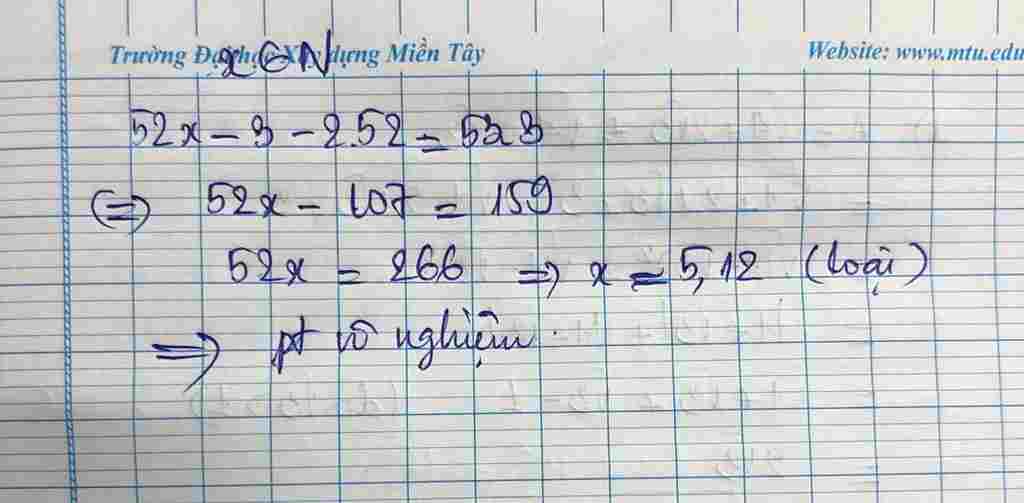 Trường Đại học Xây dựng Miền Tây Website: www.mtu.edu
x ∈ N
52x - 3 - 2.52 = 52.3
(=) 52x - 107 = 159
52x = 266 => x = 5,12 (loại)
=> pt vô nghiệm.